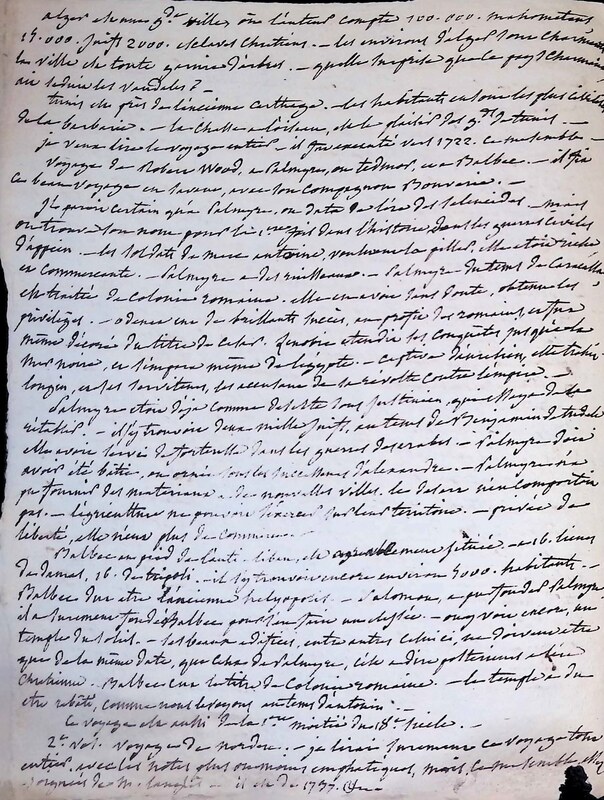 alger est une gde ville où l'auteur compte 100.000. mahometans
15.000. juifs 2000. esclaves chretiens. — les environs d'alger sont charmants
la ville est toute garnie d'arbres. — quelle surprise que le pays charmant
ait séduit les vandales ? —
tunis est près de l'ancienne carthage. — les habitants en sont les plus civilisés
de la barbarie. — la chasse à l'oiseau, est le plaisir des gds de tunis. —
je veux lire le voyage entier. — il fut exécuté vers 1722. ce me semble —
Voyage de Robert Wood, a palmyre, ou tedmor, et a Balbec. — il fit
ce beau voyage en savant, avec son compagnon Bouverie. —
il paroit certain qu'a Palmyre, on date de l'ère des seleucides. — mais
on trouve son nom pour la 1ere fois dans l'histoire, dans les guerres civiles
d'appien. — les soldats de marc antoine, voulurent la piller, elle etoit riche
et commercante. — Palmyre a des ruisseaux. — Palmyre du tems de Caracalla
est traitée de colonie romaine. elle en avoit sans doute, obtenu les
privilèges. — odenat eut de brillants succès, au profit des romains et fut
même décoré du titre de cesar. Zenobie etendit ses conquêtes jusqu'à la
mer noire, et s'empara même de l'egypte. — captive d'aurelien, elle trahit
longin, et ses serviteurs, les accusant de sa révolte contre l'empire. —
Palmyre etoit déjà comme deserte sous justinien, qui essaya de la
rétablir. — il s'y trouvoit deux mille juifs, au tems de Benjamin de tudele
elle avoit servi de forteresse dans les guerres des arabes. — Palmyre doit
avoir été bâtie, ou ornée sous les successeurs d'alexandre. — Palmyre n'a
pu fournir des materiaux a de nouvelles villes. le desert n'en comportoit
pas. — l'agriculture ne pouvoit s'exercer sur leur territoire. — privée de
liberté, elle n'eut plus de commerce. —
Balbec au pied de l'anti-liban, est agreablement située. — a 16. lieues
de damas, 16. de tripoli. — il s'y trouvoit encore environ 5000. habitants. —
Balbec dut etre l'ancienne helyopolis. — Salomon, a pu fonder Palmyre
il a surement fondé Balbec pour en faire un — on y voit encore, un
temple du soleil. — les beaux edifices, entre autres celui ci, ne doivent etre
que de la même date, que ceux de Palmyre, c'est a dire posterieurs a l'ere
chretienne. Balbec eut le titre de Colonie romaine. — le temple a du
etre rebâti, comme nous le voyons au tems d'antonin. —
ce voyage est aussi de la 1ere moitié du 18e siècle. —
2e vol. voyage de norden. — je lirai surement ce voyage tout
entier, avec les notes plus ou moins emphatiques, mais, ce me semble, assez
soignées de m. langlès — il est de 1737.